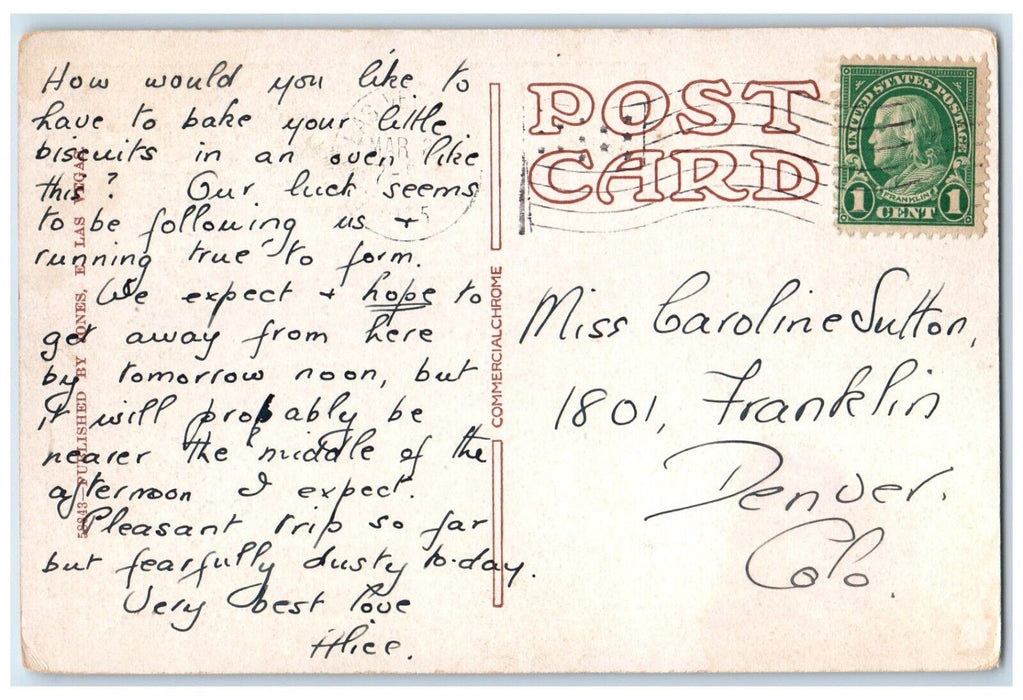 How would you like to
have to bake your little
biscuits in an oven like
this? Our luck seems
to be following us +
running true to form.
We expect + hope to
get away from here
by tomorrow noon, but
it will probably be
nearer the middle of the
afternoon I expect.
Pleasant trip so far
but fearfully dusty to-day.
Very best love
Alice.
58843—PUBLISHED BY JONES, E. LAS VEGAS
COMMERCIALCHROME
POST
CARD
MAR
5
UNITED STATES POSTAGE
FRANKLIN
1 CENT 1
Miss Caroline Sutton,
1801, Franklin
Denver.
Colo.